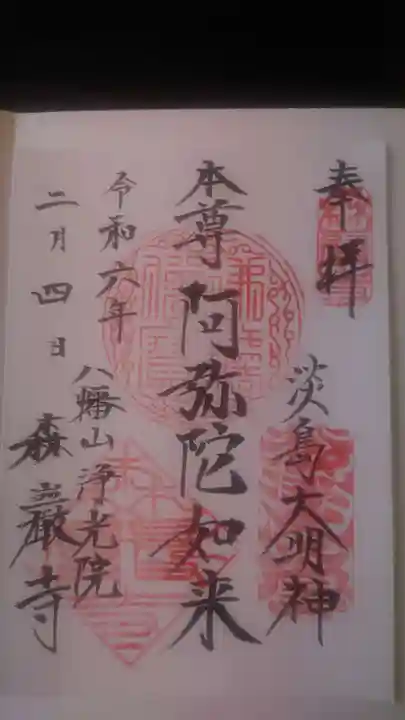 奉拝
淡島大明神
本尊 阿弥陀如来
令和六年
八幡山 浄光院
二月四日
森巖寺